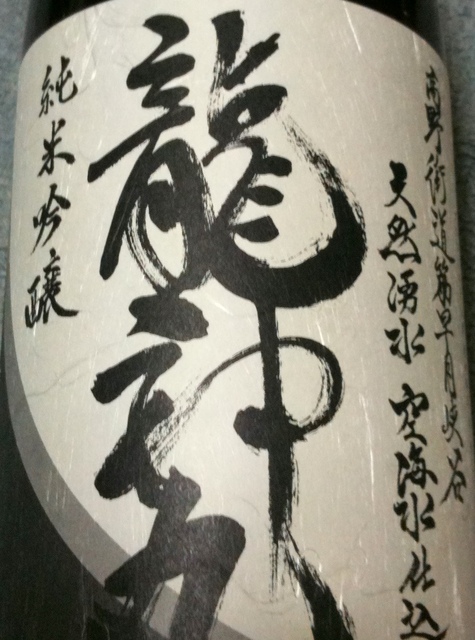 高野街道筋早月峡谷
天然湧水 空海水仕込
龍神丸
純米吟醸